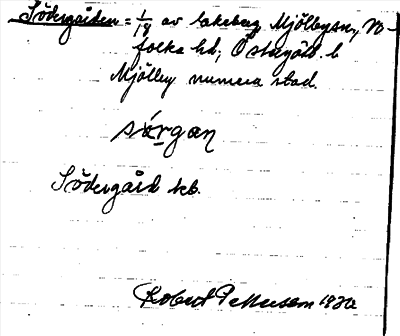 Södergården = 1/18 av Lakeberg Mjölbysn, Vi-
folka hd, Östergötl. l
Mjölby numera stad.
sörgan
Södergård seb.
Robert Pettersson 1930